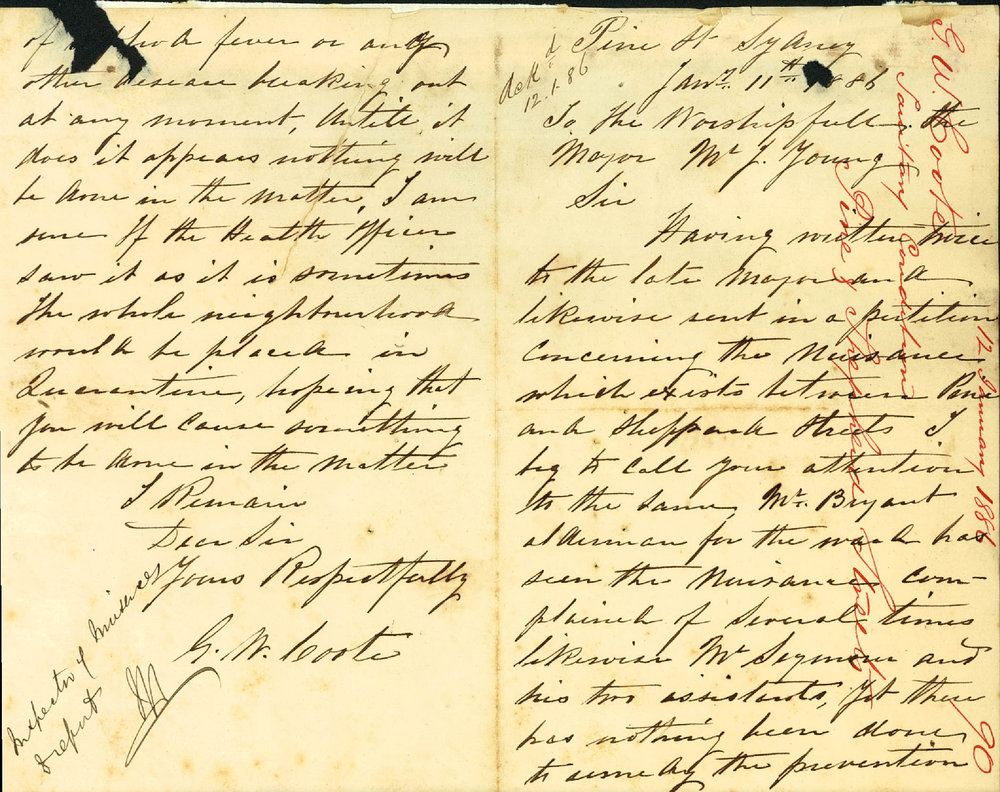 Pine St Sydney
Jany. 11th 1886
To the Worshipfull the
Mayor Mr J. Young
Sir
Having written twice
to the late Mayor and
likewise sent in a petition
concerning the Nuisance
which exists between Pine
and Sheppard Streets I
beg to call your attention
to the same, Mr. Bryant
alderman for the ward has
seen the Nuisance com-
plained of several times
likewise Mr Seymour and
his two assistants, Yet there
has nothing been done
to remedy the prevention
of fever or any
other disease breaking out
at any moment, Untill it
does it appears nothing will
be done in the matter, I am
sure If the Health Officer
saw it as it is sometimes
the whole neighbourhood
would be placed in
Quarantine, hoping that
you will cause something
to be done in the matter
I Remain
Dear Sir
Yours Respectfully
G. W. Coote
Inspector of Nuisances
to report
Ackd
12.1.86
G. W. Coote
Sanitary Condition
Pine & Sheppard Streets
12 January 1886
90